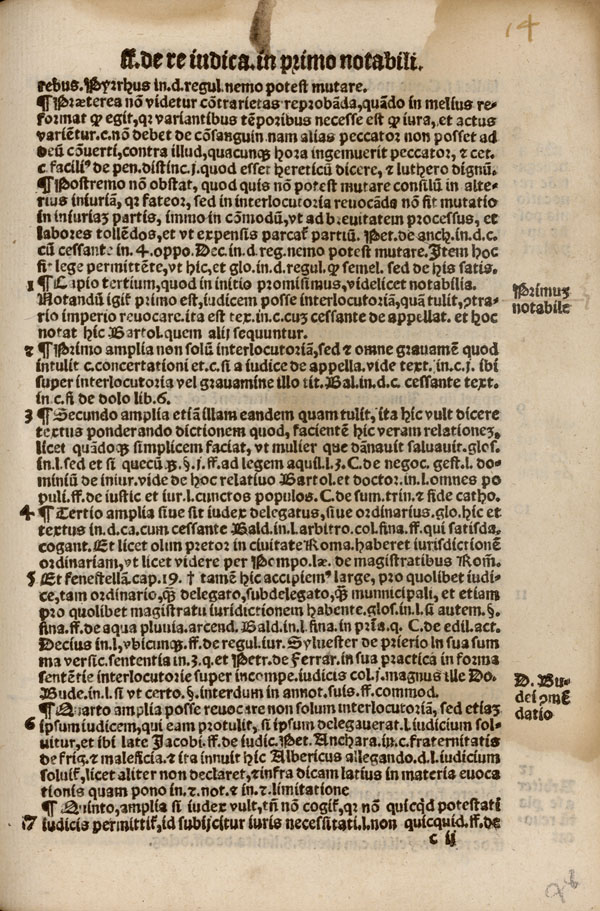 14
ff.de re iudica.in primo notabili.
rebus.Pyrrhus in.d.regul.nemo potest mutare.
¶Præterea nõ videtur cõtrarietas reprobãda,quãdo in melius re-
format ꝙ egit,qꝛ variantibus tẽporibus necesse est ꝙ iura,et actus
variẽtur.c.nõ debet de cõsanguin.nam alias peccator non posset ad
deũ cõverti,contra illud,quacunqꝫ hora ingemuerit peccator, ⁊ cet.
c facili⁹ de pen.distinc.j.quod esset hereticũ dicere, ⁊ luthero dignũ.
¶Postremo nõ obstat, quod quis nõ potest mutare consiliũ in alte-
rius iniuriã, qꝛ fateor, sed in interlocutoria revocãda nõ fit mutatio
in iniuriaʒ partis, immo in cõmodũ,vt ad brevitatem processus, et
labores tollẽdos,et vt expensis parcaꝶ partiũ. Pet.de anch.in.d.c.
cũ cessante in.4.oppo.Dec.in.d reg.nemo potest mutare.Item hoc
fit lege permittẽte,vt hic,et glo.in.d.regul.ꝙ semel. sed de his satis.
1 ¶Capio tertium,quod in initio promisimus,videlicet notabilia.
Notandũ igiꝶ primo est,iudicem posse interlocutoriã,quã tulit,ꝯtra-
rio imperio revocare.ita est tex.in.c.cuʒ cessante de appellat. et hoc
notat hic Bartol.quem alij sequuntur.
Primuʒ
notabile
2 ¶Primo amplia non solũ interlocutoriã,sed ⁊ omne gravamẽ quod
intulit c.concertationi et.c.si a iudice de appella.vide text.in.c.j. ibi
super interlocutoria vel gravamine illo tit.Bal.in.d.c. cessante text.
in.c.si de dolo lib.6.
3 ¶Secundo amplia etiã illam eandem quam tulit, ita hic vult dicere
textus ponderando dictionem quod, facientẽ hic veram relationeʒ,
licet quãdoqꝫ simplicem faciat, vt mulier que dãnavit salvavit.glos.
in.l.sed et si quecũqꝫ.§.j.ff.ad legem aquil.l.3.C.de negoc. gest.l. do-
miniũ de iniur.vide de hoc relativo Bartol.et doctor.in.l.omnes po
puli.ff.de iustic et iur.l.cunctos populos.C.de sum.trin.⁊ fide catho.
4 ¶Tertio amplia sive sit iudex delegatus,sive ordinarius.glo.hic et
textus in.d.ca.cum cessante Bald.in.l.arbitro.col.fina.ff.qui satisda.
cogant.Et licet olim pretor in civitate Roma.haberet iurisdictionẽ
ordinariam,vt licet videre per Pompo.læ. de magistratibus Rom̃.
5 Et fenestellã.cap.19. † tamẽ hic accipiem⁹ large, pro quolibet iudi-
ce,tam ordinario,ꝙ̃ delegato,subdelegato,ꝙ̃ municipali, et etiam
pro quolibet magistratu iuridictionem habente.glos.in.l.si autem.§.
fina.ff.de aqua pluvia.arcend. Bald.in.l.fina.in prĩa.q. C.de edil.act.
Decius in.l,vbicunqꝫ.ff.de regul.iur. Sylvester de prierio in sua sum
ma versic.sententia in.3.q.et Petr.de Ferrar.in sua practica in forma
sentẽtie interlocutorie super incompe.iudicis col.j.magnus ille Do.
Bude.in.l.si vt certo.§.interdum in annot.suis.ff.commod.
D. Bu-
dei ꝯmẽ
datio
¶Quarto amplia posse revocare non solum interlocutoriã, sed etiaʒ
6 ipsum iudicem,qui eam protulit, si ipsum delegaverat.l.iudicium sol-
vitur,et ibi late Jacobi.ff.de iudic.Pet.Anchara.in.c.fraternitatis
de frig.⁊ maleficia.⁊ ita innuit hic Albericus allegando.d.l.iudicium
solviꝶ,licet aliter non declaret,⁊ infra dicam latius in materia evoca
tionis quam pono in.2.not.⁊ in.2.limitatione
¶Quinto,amplia si iudex vult,tñ nõ cogiꝶ,qꝛ nõ quicqd̃ potestati
7 iudicis permittiꝶ,id subijcitur iuris necessitati.l.non quicquid.ff.de
c ij